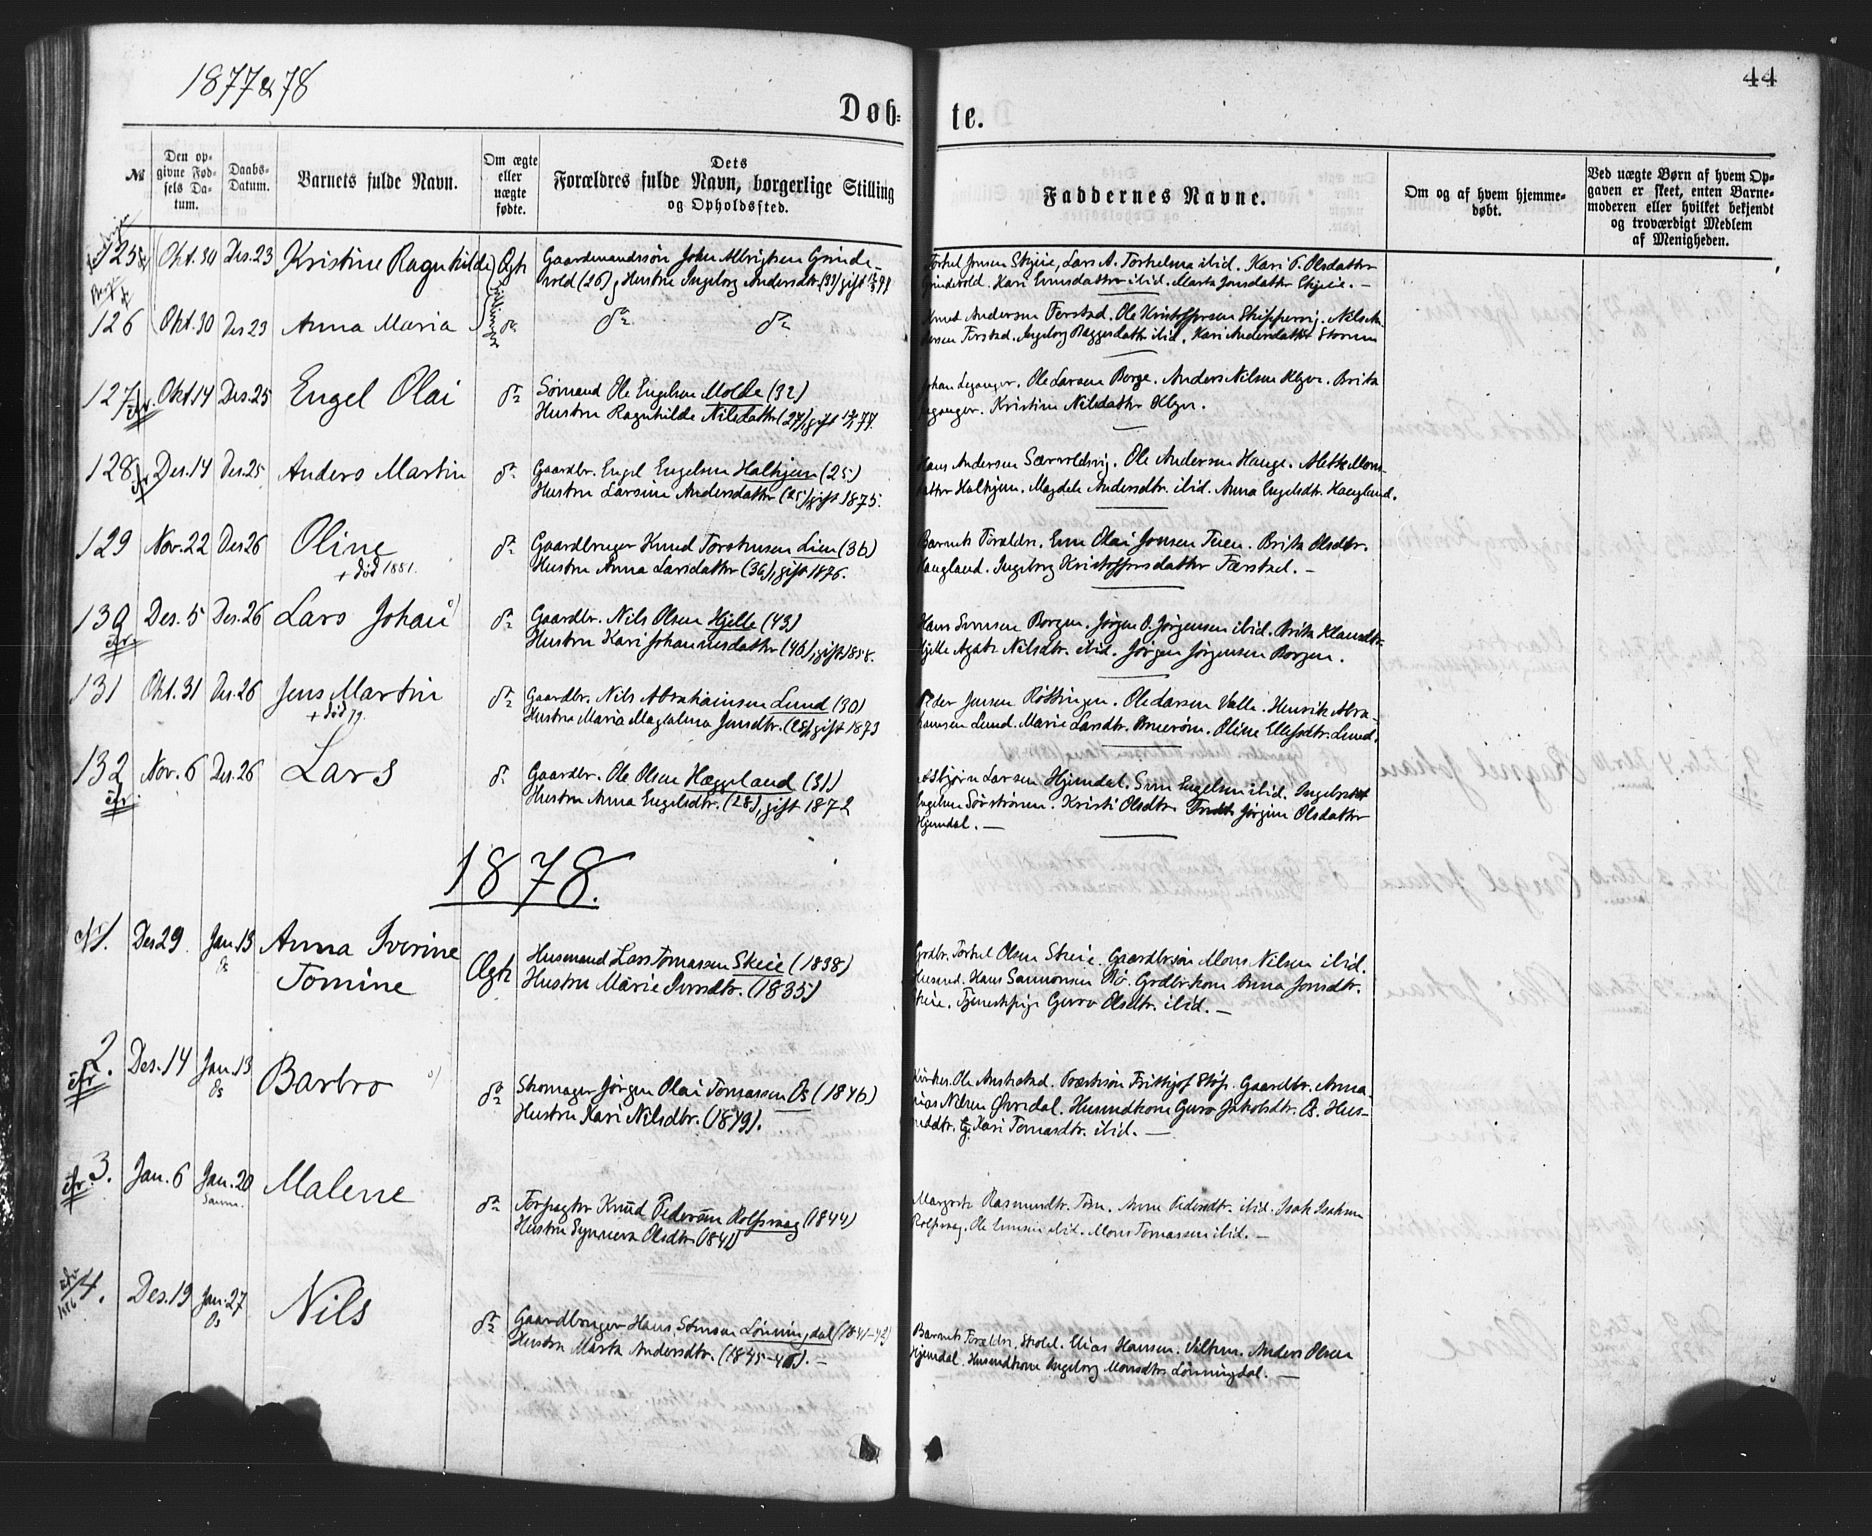 1877 & 78
44
Døb-
te.
№
Den op-
givne Fød-
sels Da-
tum.
Daabs-
Datum.
Barnets fulde Navn.
Om ægte
eller
uægte
fødte.
Dets
Forældres fulde Navn, borgerlige Stilling
og Opholdssted.
Faddernes Navne.
Om og af hvem hjemme-
døbt.
Ved uægte Børn af hvem Op-
gaven er skeet, enten Barne-
moderen eller hvilket bekjendt
og troværdigt Medlem
af Menigheden.
125 Okt. 30 Des. 23 Kristine Ragnhilde Ægte Gaardmandssøn John Albrigtsen Grinde-
vold (26) Hustru Ingeborg Andersdtr. (33) gift
Torkel Jonsen Skjeie, Lars A. Torkelsen ibid. Kari O. Olsdatter
Grindevold. Kari ibid. Marta Jonsdatter Skjeie. —
126 Okt. 30 Des 23 Anna Maria do do do
Knud Andersen Ferstad. Ole Kristoffersen Skippervig. Nils An-
dersen Ferstad. Ingeborg Baggesdatter ibid. Kari Andersdatter Storum
127 Okt. 14 Des. 25 Engel Olai do Sømand Ole Engelsen Molde (32)
Hustru Ragnhilde Nilsdatter (27), gift 77.
Johan Leganger. Ole Larsen Berge. Anders Nilsen Klyve. Brita
Leganger. Kristine Nilsdatter Klyve.
128 Des. 14 Des. 25 Anders Martin do Gaardbr. Engel Engelsen Halhjem (25)
Hustru Larsine Andersdatter (25) gift 1875.
Hans Andersen Særvoldsvig. Ole Andersen Hauge. Alette Mons-
datter Halhjem. Magdele Andersdtr. ibid. Anna Engelsdtr. Haugland.
129 Nov. 22 Des 26 Oline do Gaardbruger Knud Torstensen Lien (36)
+ død 1881. Hustru Anna Larsdatter (36), gift 1876.
Barnets Forældre. Enm. Olai Jonsen Tuen. Brita Olsdtr.
Haugland. Ingeborg Kristoffersdatter Færstad. —
130 Des. 5 Des. 26 Lars Johan do Gaardbr. Nils Olsen Hjelle (43)
Hustru Kari Johannesdatter (40), gift 1858.
Hans Simonsen Borgen. Jørgen O. Jørgensen ibid. Brita Klausdtr.
Hjelle Agate Nilsdtr. ibid. Jørgen Jørgensen Borgen.
131 Okt. 31 Des. 26 Jens Martin do Gaardbr. Nils Abrahamsen Lund (30)
+ død 79. Hustru Maria Magdalena Jensdtr. (28) gift 1873
Peder Jensen Røttingen. Ole Larsen Valle. Henrik Abra-
hamsen Lund. Marie Larsdtr. Oline Ellefsdtr. Lund.
132 Nov. 6 Des. 26 Lars do Gaardbr. Ole Olsen Hæggland (31)
Hustru Anna Engelsdtr. (28), gift 1872
Larsen Hjemdal. Sven Engelsen ibid. Ingebrikt
Engelsen Sørstrønen. Kristi Olsdtr. Jørgine Olsdatter
Hjemdal. —
1878.
№ 1. Des 29 Jan. 13 Anna Iverine Ægte Husmand Lars Tomassen Skeie (1838)
Os Tomine Hustru Marie Iversdtr. (1835)
Grdbr. Torkel Olsen Skeie. Gaardbrsøn Mons Nilsen ibid.
Husmd. Hans Samonsen Bø. Grdbrkone Anna Jonsdtr.
Skeie. Tjenestepige Guro Olsdtr. ibid. —
2. Des. 14 Jan. 13 Barbro do Skomager Jørgen Olai Tomassen Os (1846)
Os Hustru Kari Nilsdtr. (1849).
Kirkes. Ole Austestad. Præstesøn Frittjof Støp. Gaardbr. Anna-
nias Nilsen Øvredal. Husmdkone Guro Jakobsdtr. Os. Hus-
mddtr. Kari Tomasdtr. ibid. —
3. Jan. 6 Jan. 20 Malene do Forpagter Knud Pedersen Rolfsvaag (1844)
Samn. Hustru Synneva Olsdtr. (1841)
Margrete Rasmusdtr. Anne Pedersdtr. ibid. Isak Isaksen
Rolfsvaag. Ole ibid. Mons Tomassen ibid. —
4. Des. 19 Jan. 27 Nils do Gaardbruger Hans Simonsen Lønningdal (1841-42)
Os Hustru Marta Andersdtr. (1845-46). —
Barnets Forældre. Skolel. Elias Hansen. Anders Olsen
Hjemdal. Husmdkone Ingeborg Monsdtr. Lønningdal. —